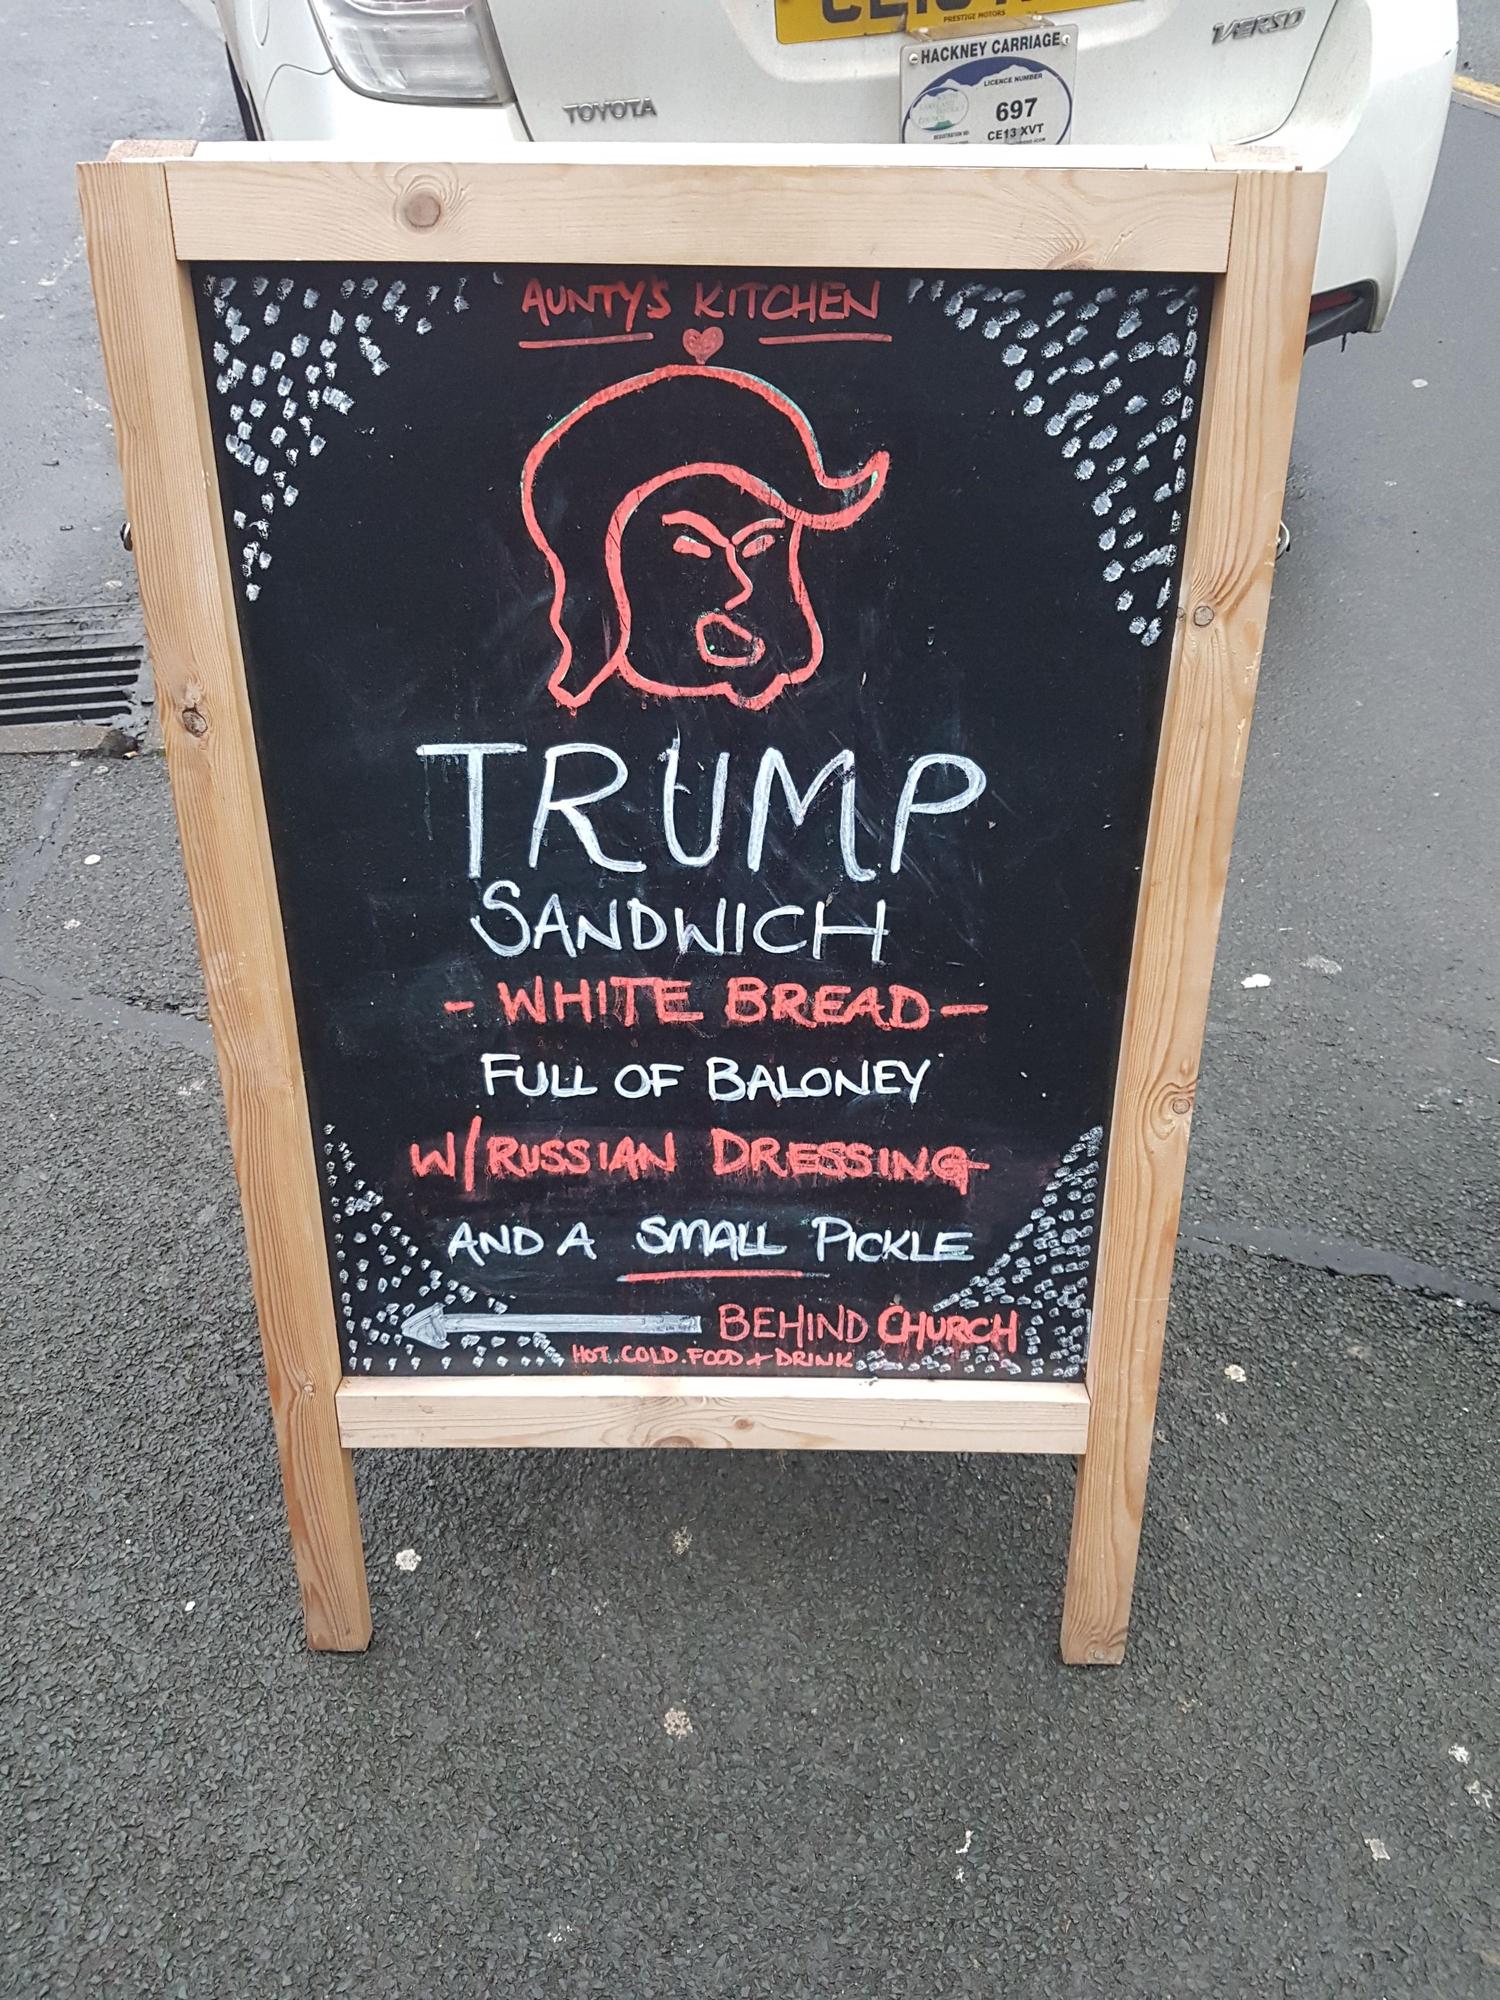 PRESTIGE MOTORS
VERSO
TOYOTA
HACKNEY CARRIAGE
LICENCE NUMBER
697
CE13 XVT
AUNTY'S KITCHEN
TRUMP
SANDWICH
- WHITE BREAD -
FULL OF BALONEY
W/RUSSIAN DRESSING
AND A SMALL PICKLE
BEHIND CHURCH
HOT.COLD.FOOD + DRINK